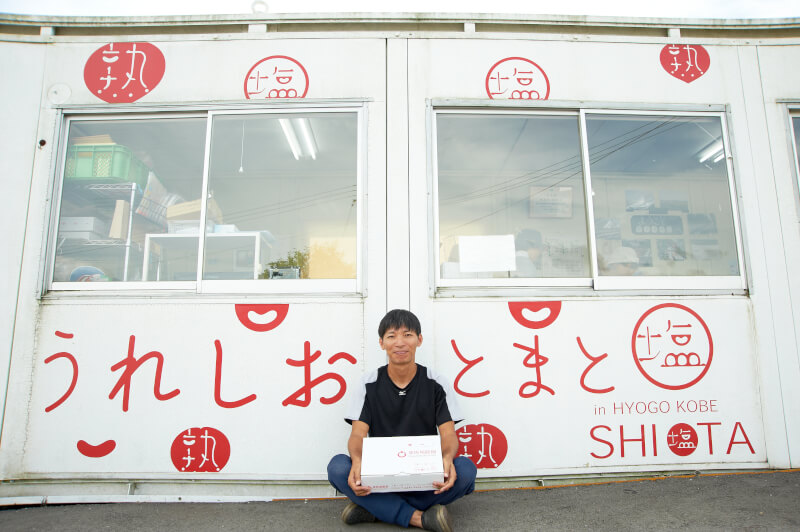 熟
塩
塩
熟
うれしおとまと
塩
in HYOGO KOBE
SHI塩TA
熟
熟